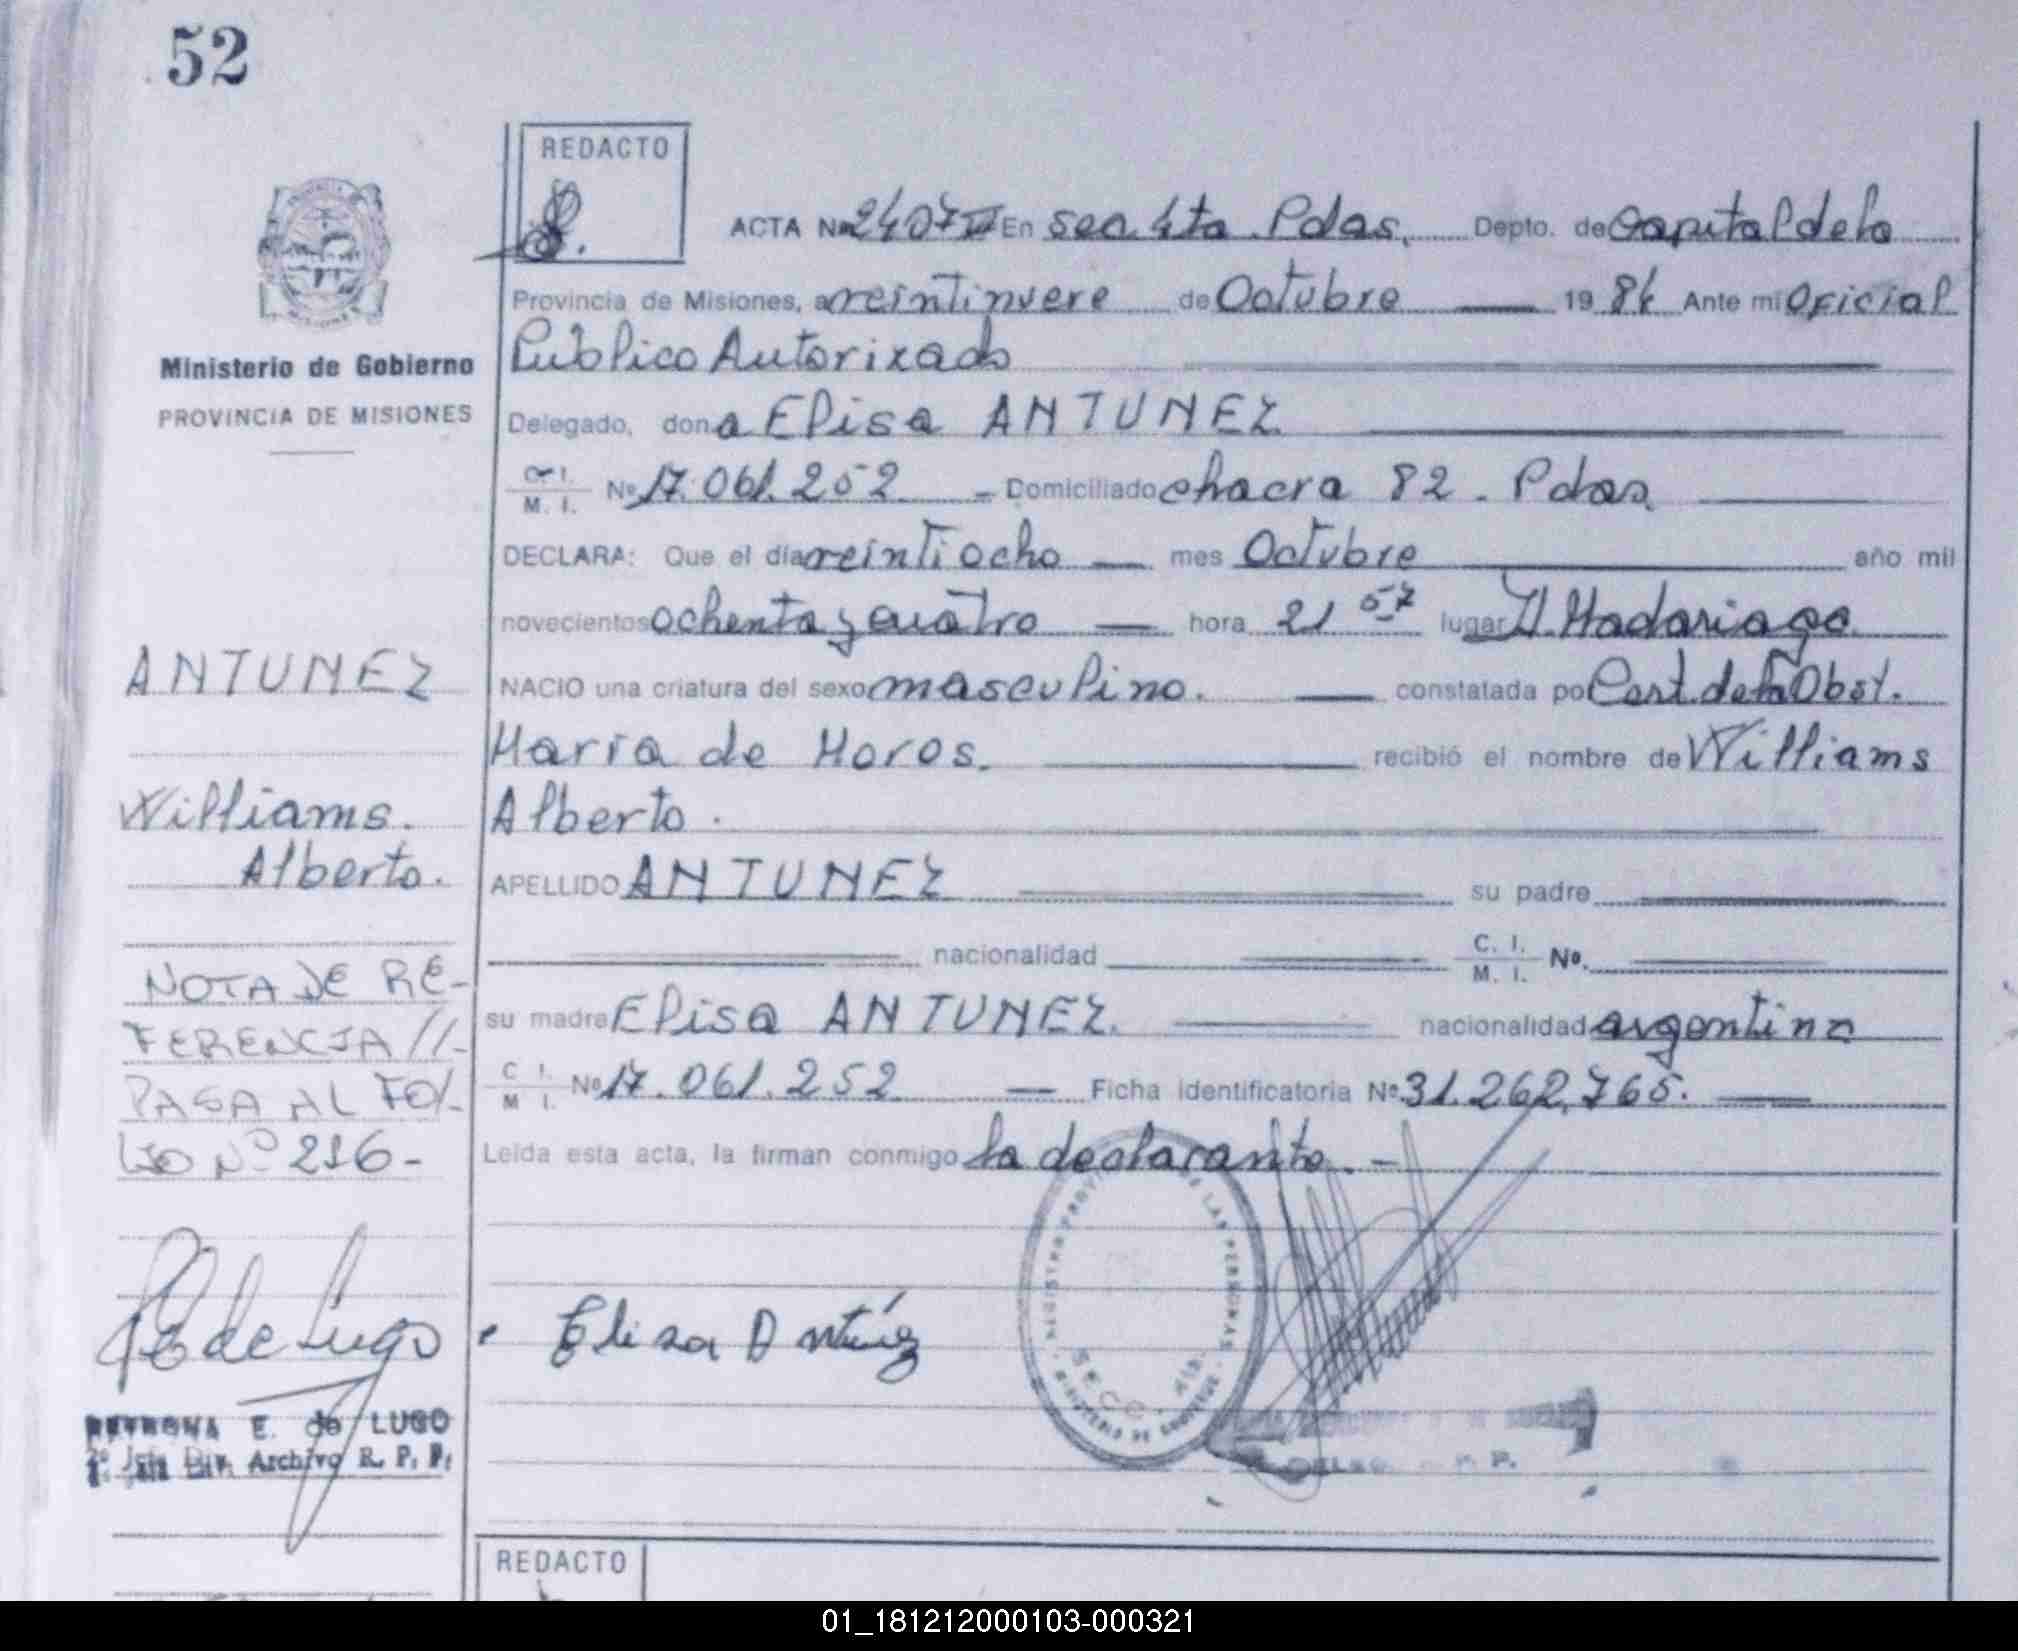 52
REDACTO
ACTA Nº 2407 III En sec. 4ta Pdas. Depto. de Capital de la
Provincia de Misiones, a veintinueve de Octubre 1984 Ante mi Oficial
Público Autorizado
Ministerio de Gobierno
PROVINCIA DE MISIONES
Delegado, don a Elisa ANTUNEZ
C. I. M. I. Nº 17.061.252 Domiciliado chacra 82. Pdas.
DECLARA: Que el día veintiocho mes Octubre año mil
novecientos ochenta y cuatro hora 21 57 lugar H. Madariaga
ANTUNEZ
NACIO una criatura del sexo masculino. constatada po Cert. de la Obst.
Maria de Moros. recibió el nombre de Williams
Williams.
Alberto.
Alberto.
APELLIDO ANTUNEZ su padre
nacionalidad C. I. M. I. Nº.
NOTA DE RE-
FERENCIA //-
PASA AL FO/-
LIO Nº 216-
su madre Elisa ANTUNEZ. nacionalidad argentina
C. I. M. I. Nº 17.061.252 Ficha identificatoria Nº 31.262.765.
Leida esta acta, la firman conmigo la declarante.-
REGISTRO PROVINCIAL DE LAS PERSONAS
MINISTERIO DE GOBIERNO
SECC.
de Lugo
Elisa Antúnez
PETRONA E. de LUGO
Jefa Div. Archivo R. P. P.
REDACTO
01_181212000103-000321